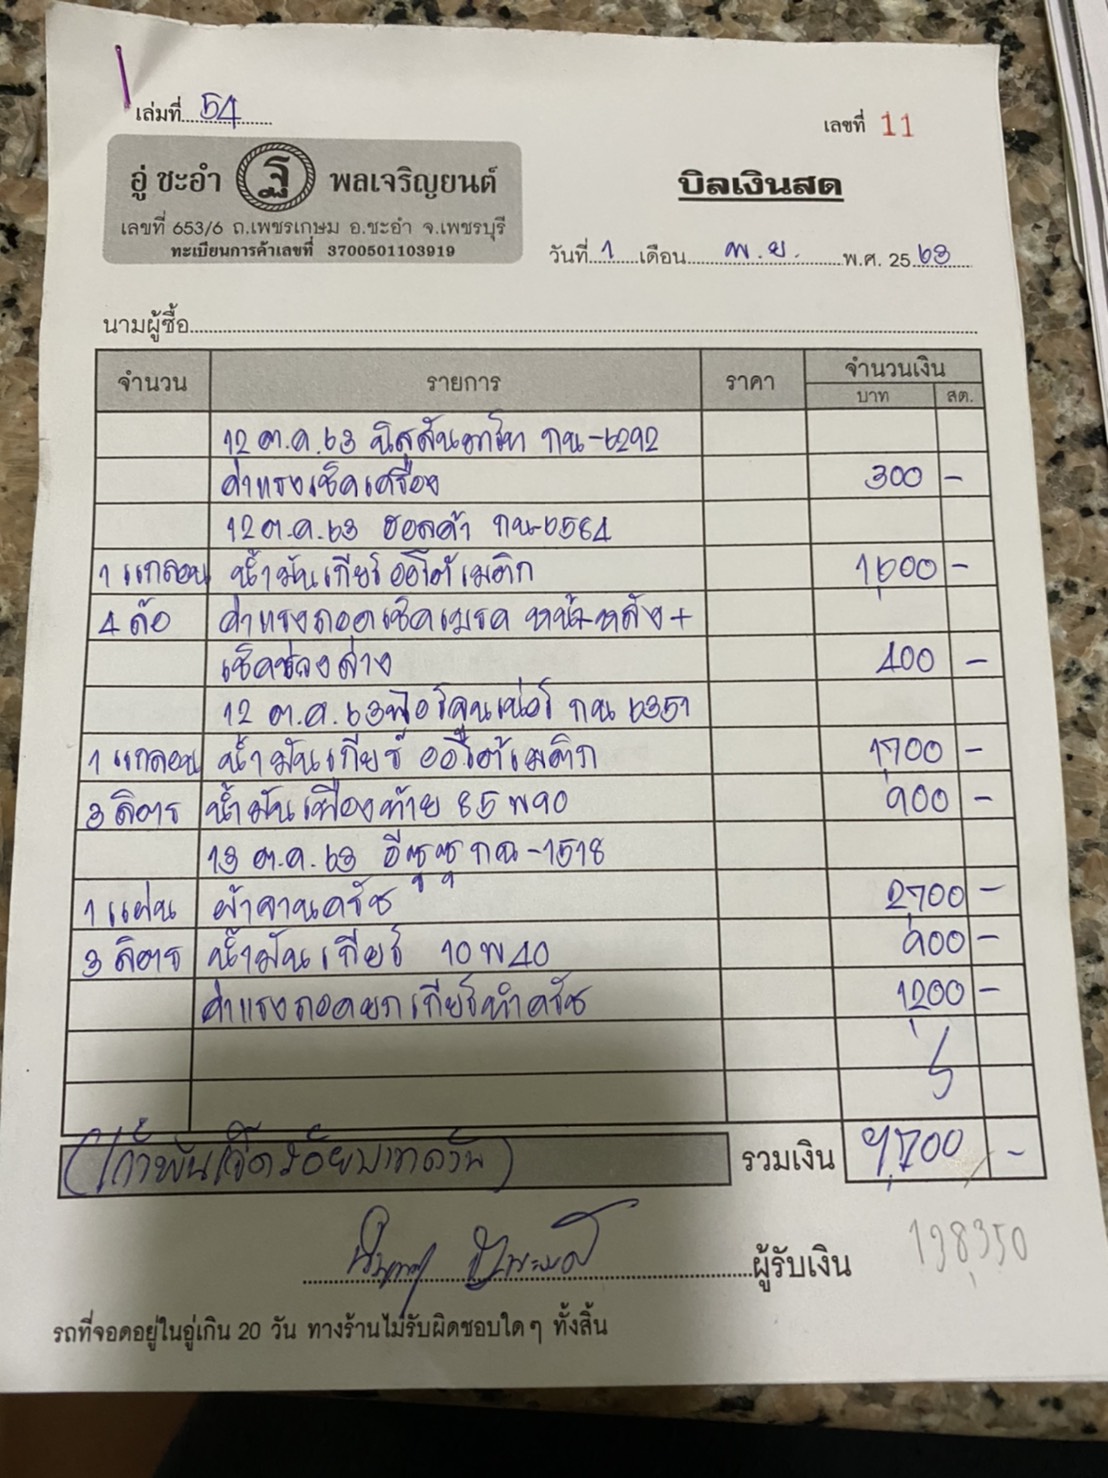 เล่มที่ 54
เลขที่ 11
อู่ ชะอำ ฐ พลเจริญยนต์
เลขที่ 653/6 ถ.เพชรเกษม อ.ชะอำ จ.เพชรบุรี
ทะเบียนการค้าเลขที่ 3700501103919
บิลเงินสด
วันที่ 1 เดือน พ.ย. พ.ศ. 2563
นามผู้ซื้อ
จำนวน รายการ ราคา จำนวนเงิน
บาท สต.
12 ต.ค. 63 นิสสัน กน-6292
ค่าแรงเช็คเครื่อง 300 -
12 ต.ค. 63 ฮอลด้า กน-6564
1 แกลอน น้ำมันเกียร์ออโต้เมติก 1,600 -
4 ล้อ ค่าแรงถอดเช็คเบรค หน้า-หลัง +
เช็คช่วงล่าง 400 -
12 ต.ค. 63 ฟอร์จูนเนอร์ กน 6351
1 แกลอน น้ำมันเกียร์ ออโต้เมติก 1,700 -
3 ลิตร น้ำมันเฟืองท้าย 85 W 90 900 -
13 ต.ค. 63 อีซูซุ กฉ-1518
1 แผ่น ผ้าจานครัช 2,700 -
3 ลิตร น้ำมันเกียร์ 10 W 40 900 -
ค่าแรงถอดยกเกียร์ทำครัช 1,200 -
(เก้าพันเจ็ดร้อยบาทถ้วน) รวมเงิน 9,700 -
ผู้รับเงิน 198,350
รถที่จอดอยู่ในอู่เกิน 20 วัน ทางร้านไม่รับผิดชอบใดๆ ทั้งสิ้น